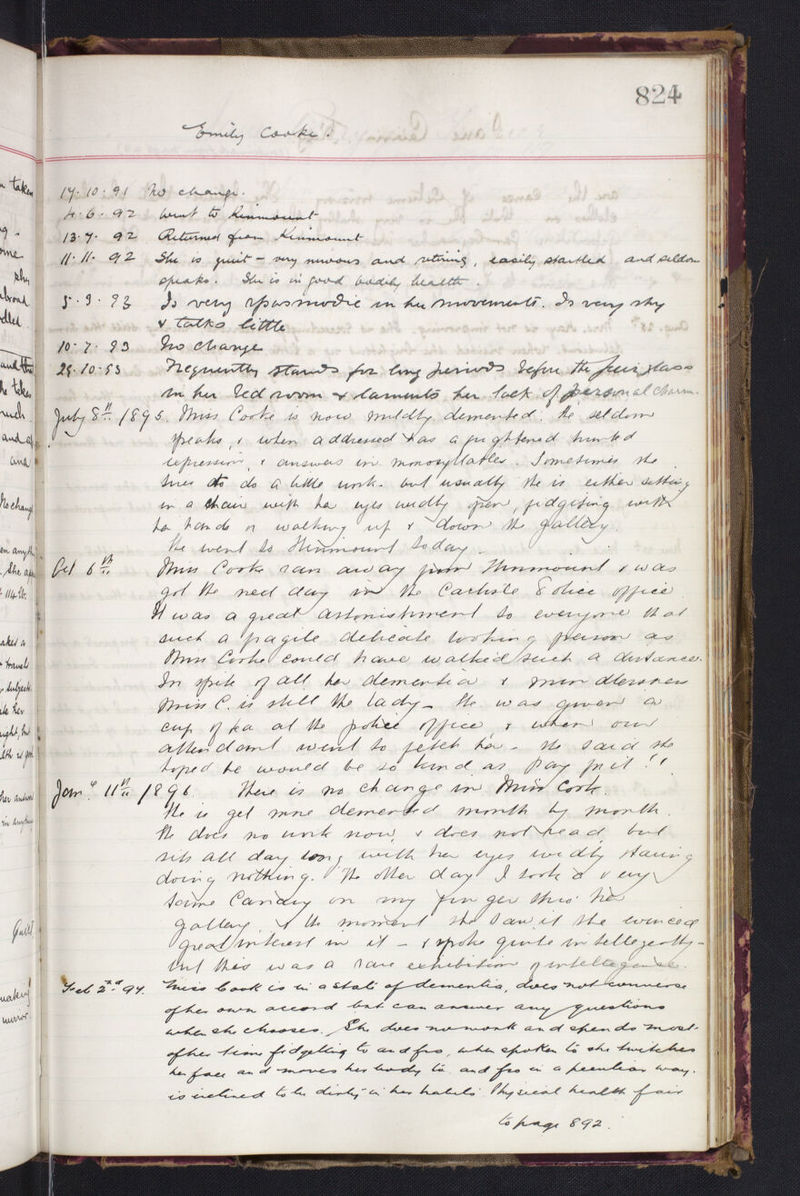 824
Emily Cooke.
17.10.91 No change.
4.6.92 Went to Kinmount
13.7.92 Returned from Kinmount
11.11.92 She is quiet – very nervous and retiring, easily startled and seldom
speaks. She is in good bodily health.
5.3.93 Is very spasmodic in her movements. Is very shy
& talks little
10.7.93 No change
25.10.93 Frequently stands for long periods before the pier glass
in her bed room & laments her lack of personal charm.
July 8th 1895. Miss Cooke is now mildly demented. She seldom
speaks, & when addressed has a frightened hunted
expression, & answers in monosyllables. Sometimes she
tries to do a little work. but usually she is either sitting
in a chair with her eyes widely open, fidgeting with
her hands or walking up & down the gallery.
She went to Kinmount today.
Oct 6th Miss Cooke ran away from Kinmount & was
got the next day in the Carlisle Police office.
It was a great astonishment to everyone that
such a fragile delicate looking person as
Miss Cooke could have walked such a distance.
In spite of all her dementia & mindlessness
Miss C. is still the lady – She was given a
cup of tea at the police office, & when our
attendant went to fetch her – she said she
hoped he would be so kind as pay for it!!
Jany 11th 1896. There is no change in Miss Cook
She is get more demented month by month.
She does no work now, & does not read, but
sits all day long with her eyes widely staring
doing nothing. The other day I took a very
tame Canary on my finger thro' her
gallery, & the moment she saw it she evinced
great interest in it – & spoke quite intelligently –
but this was a rare exhibition of intelligence.
Feb 2nd 97. Miss Cook is in a state of dementia, does not converse
of her own accord but can answer any questions
when she chooses. She does no work and spends most
of her time fidgeting to and fro, when spoken to she twitches
her face and moves her body to and fro in a peculiar way.
is inclined to be dirty in her habits. Physical health fair
to page 892.